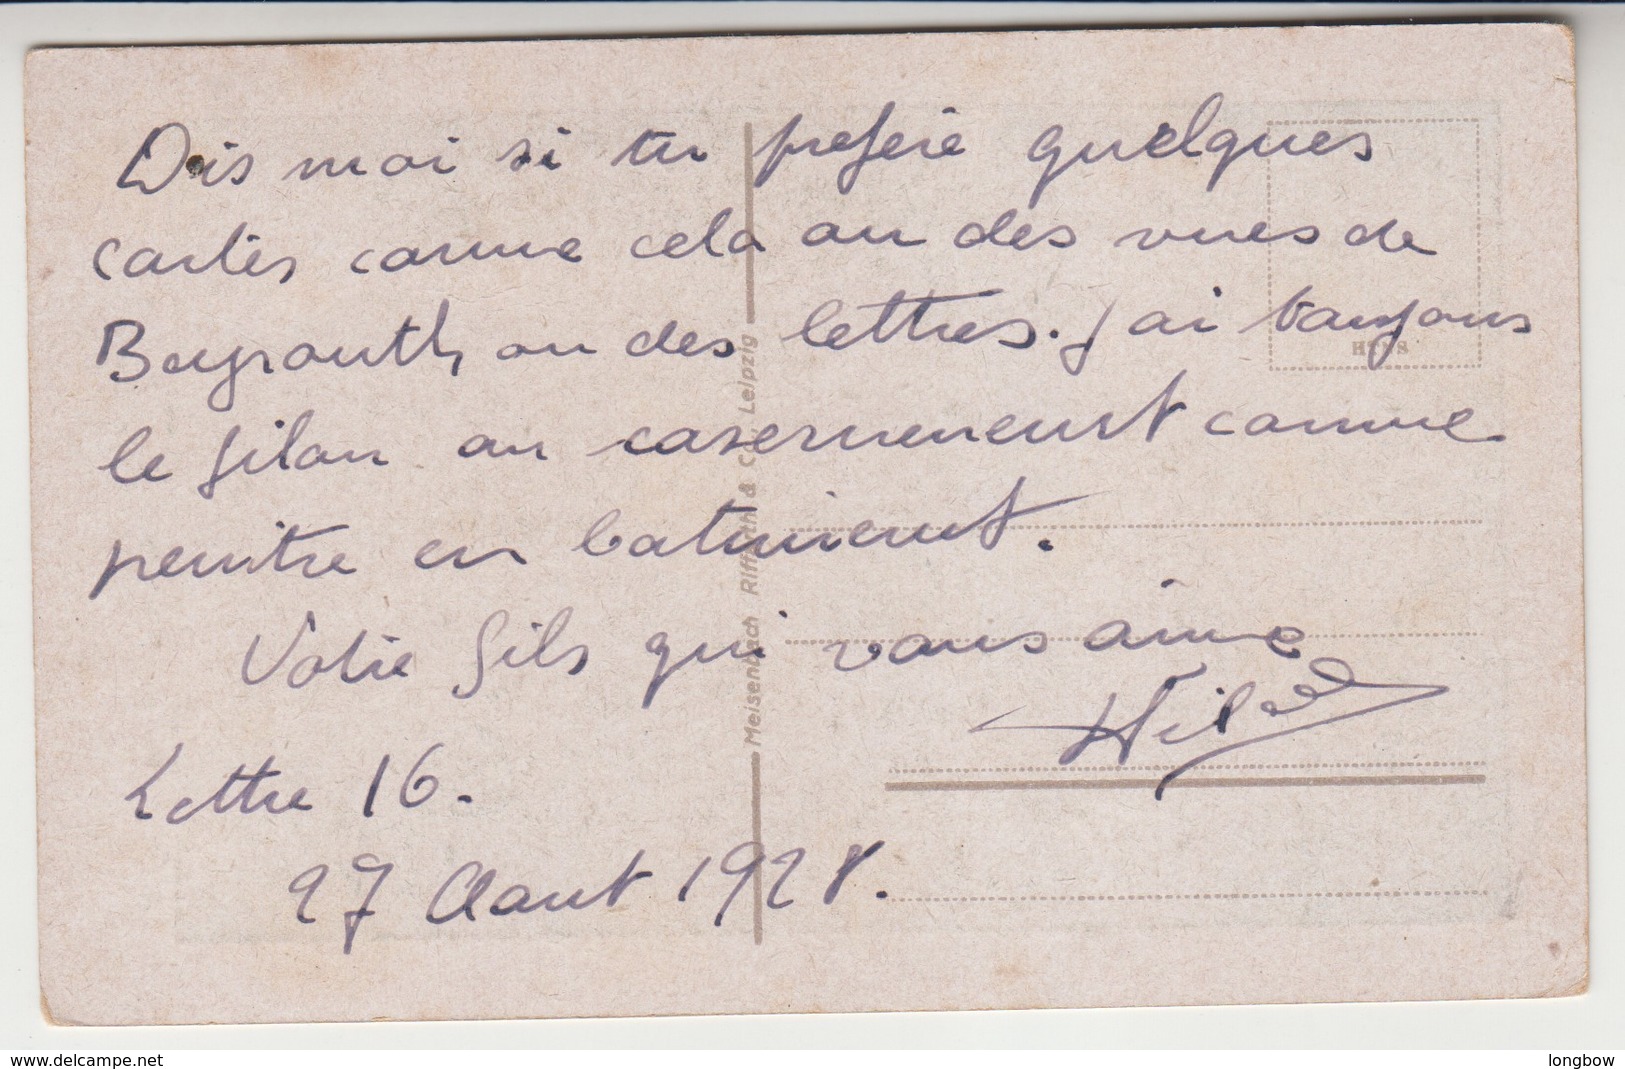 Dis moi si tu prefere quelques
cartes comme cela ou des vues de
Beyrouth, ou des lettres. J'ai toujours
le filon au casernement comme
peintre en batiment.
Votre fils qui vous aime
Lettre 16.
27 Aout 1928.
Meisenbach Riffarth & Co., Leipzig
www.delcampe.net
longbow